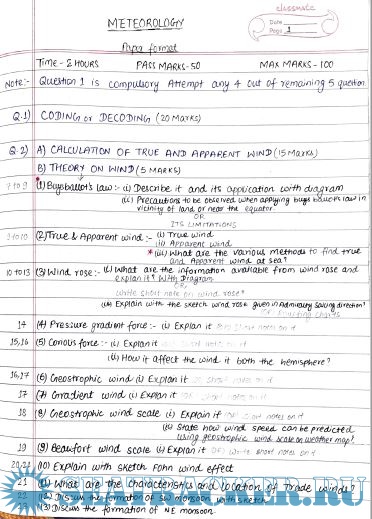 classmate
Date
Page 1
METEOROLOGY
Paper format
Time - 2 HOURS PASS MARKS-50 MAX MARKS - 100
Note:- Question 1 is compulsory Attempt any 4 out of remaining 5 question
Q.1) CODING or DECODING (20 Marks)
Q.2) A) CALCULATION OF TRUE AND APPARENT WIND (15 Marks)
B) THEORY ON WIND (5 MARKS)
7 to 9 (1) Buys ballot's law :- (i) Describe it and its application with diagram
(ii) Precautions to be observed when applying buys ballot's law in
vicinity of land or near the equator.
OR
ITS LIMITATIONS
9 to 10 (2) True & Apparent wind :- (i) True wind
(ii) Apparent wind
*(iii) What are the various methods to find true
and Apparent wind at sea?
10 to 13 (3) Wind rose :- (i) What are the information available from wind rose and
explain it? With Diagram
OR
write short note on wind rose?
(ii) Explain with the sketch wind rose given in Admiralty Sailing direction?
or Routing charts
14 (4) Pressure gradient force :- (i) Explain it short notes on it
15,16 (5) Coriolis force :- (i) Explain it short notes on it
(ii) How it affect the wind it both the hemisphere?
16,17 (6) Geostrophic wind (i) Explain it short notes on it
17 (7) Gradient wind (i) Explain it short notes on it
18 (8) Geostrophic wind scale (i) Explain it short notes on it
(ii) State how wind speed can be predicted
using geostrophic wind scale on weather map?
19 (9) Beaufort wind scale (i) Explain it OR write short notes on it
20,21 (10) Explain with sketch Fohn wind effect
21 (11) What are the characteristics and location of Trade winds?
22 (12) Discuss the formation of SW monsoon with sketch
(13) Discuss the formation of NE monsoon
.RU